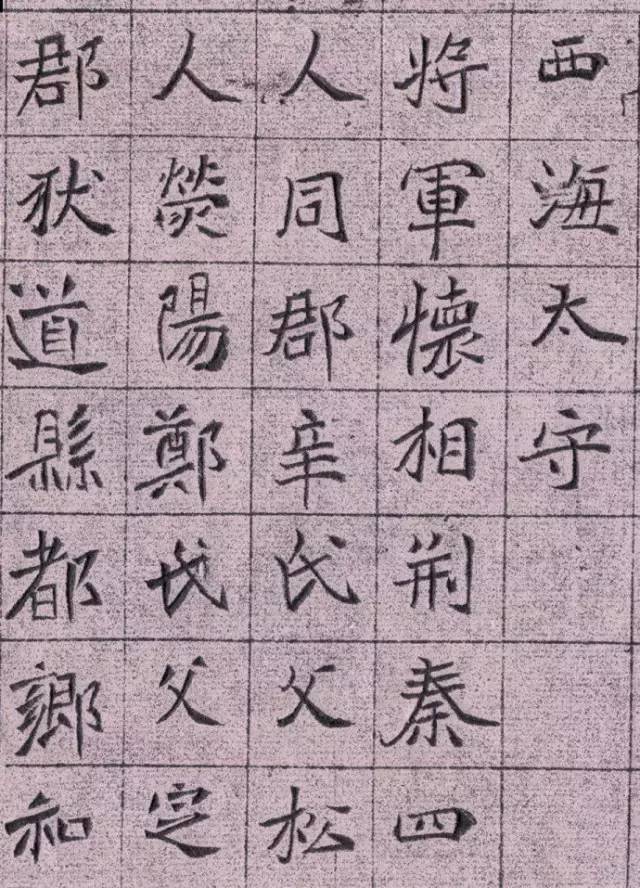 西海太守
将軍懷相荆秦四
人同郡辛氏父松
人熒陽鄭氏父定
郡狄道縣都鄉和